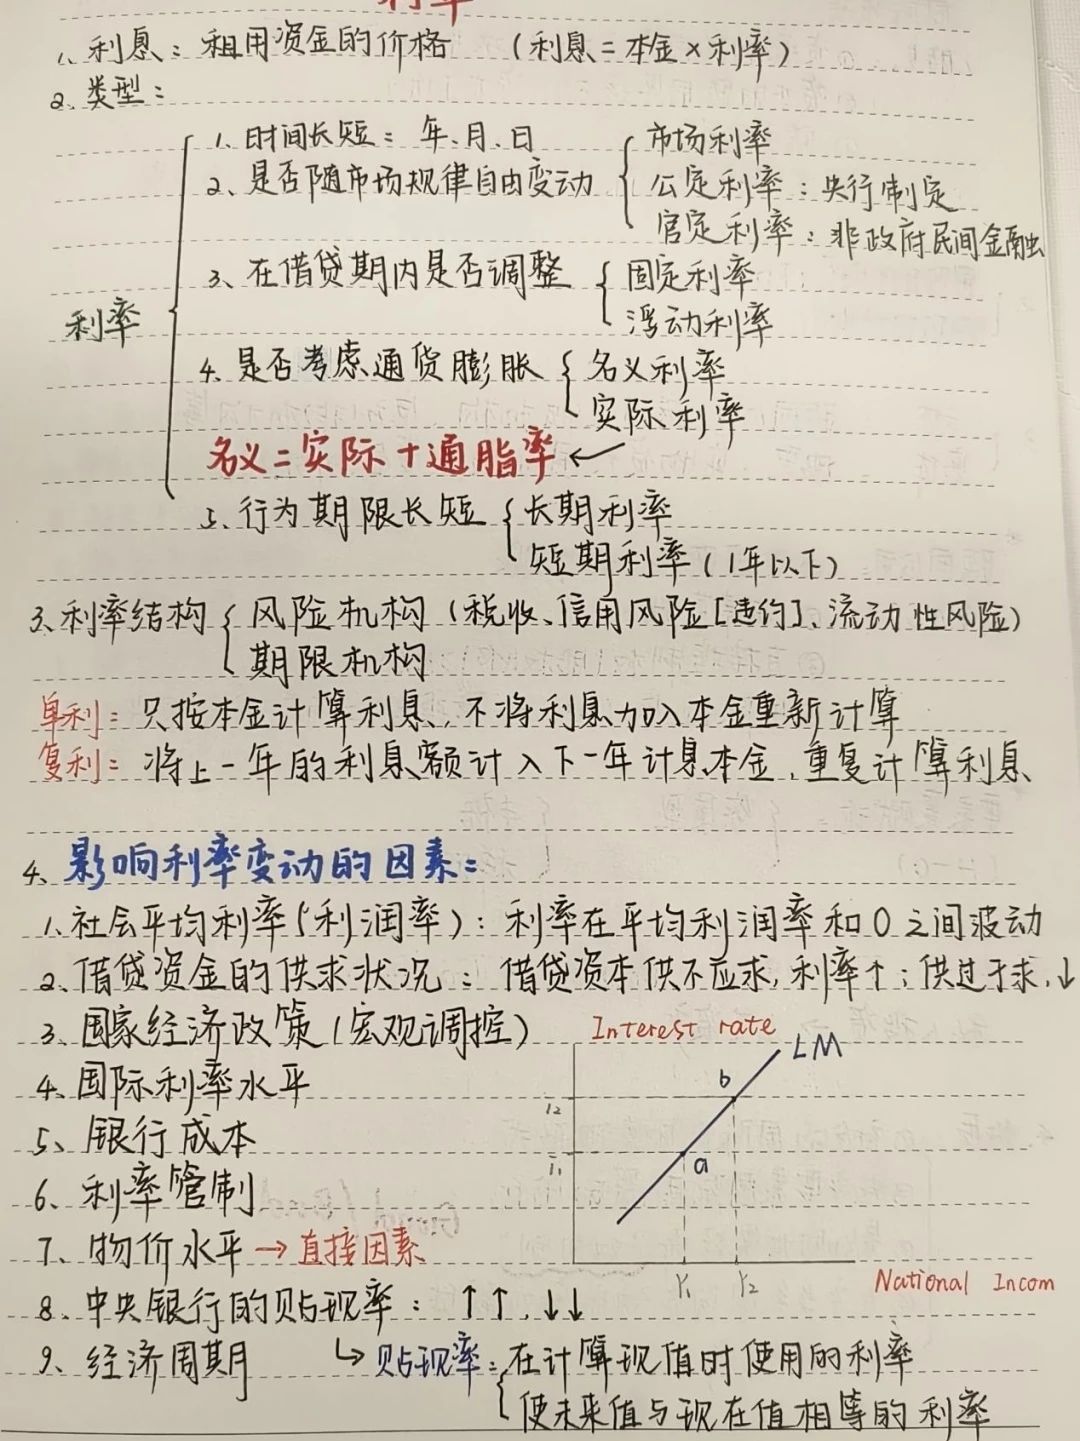 利率
1、利息：租用资金的价格 （利息=本金×利率）
2、类型：
利率
1、时间长短：年、月、日
2、是否随市场规律自由变动
市场利率
公定利率：央行制定
官定利率：非政府民间金融
3、在借贷期内是否调整
固定利率
浮动利率
4、是否考虑通货膨胀
名义利率
实际利率
名义=实际+通脂率 ←
5、行为期限长短
长期利率
短期利率（1年以下）
3、利率结构
风险机构（税收、信用风险[违约]、流动性风险）
期限机构
单利：只按本金计算利息，不将利息加入本金重新计算
复利：将上一年的利息额计入下一年计息本金，重复计算利息
4、影响利率变动的因素：
1、社会平均利率（利润率）：利率在平均利润率和0之间波动
2、借贷资金的供求状况：借贷资本供不应求，利率↑；供过于求，↓
3、国家经济政策（宏观调控）
4、国际利率水平
5、银行成本
6、利率管制
7、物价水平→直接因素
8、中央银行的贴现率：↑↑，↓↓
9、经济周期
↳贴现率：
在计算现值时使用的利率
使未来值与现在值相等的利率
Interest rate
LM
b
i2
a
i1
Y1 Y2
National Incom